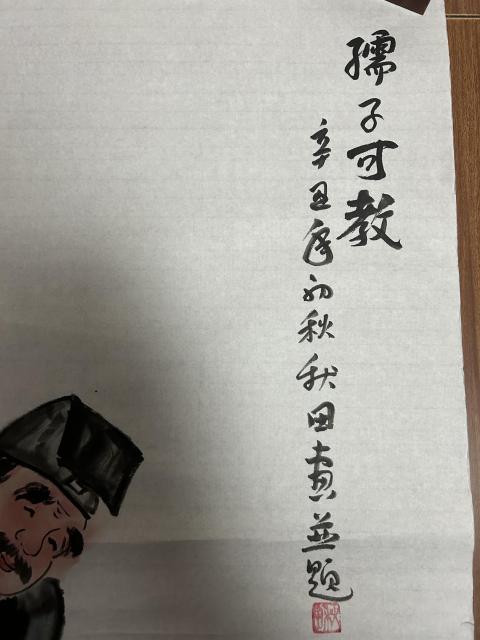 孺子可教
辛丑年初秋秋田画並題